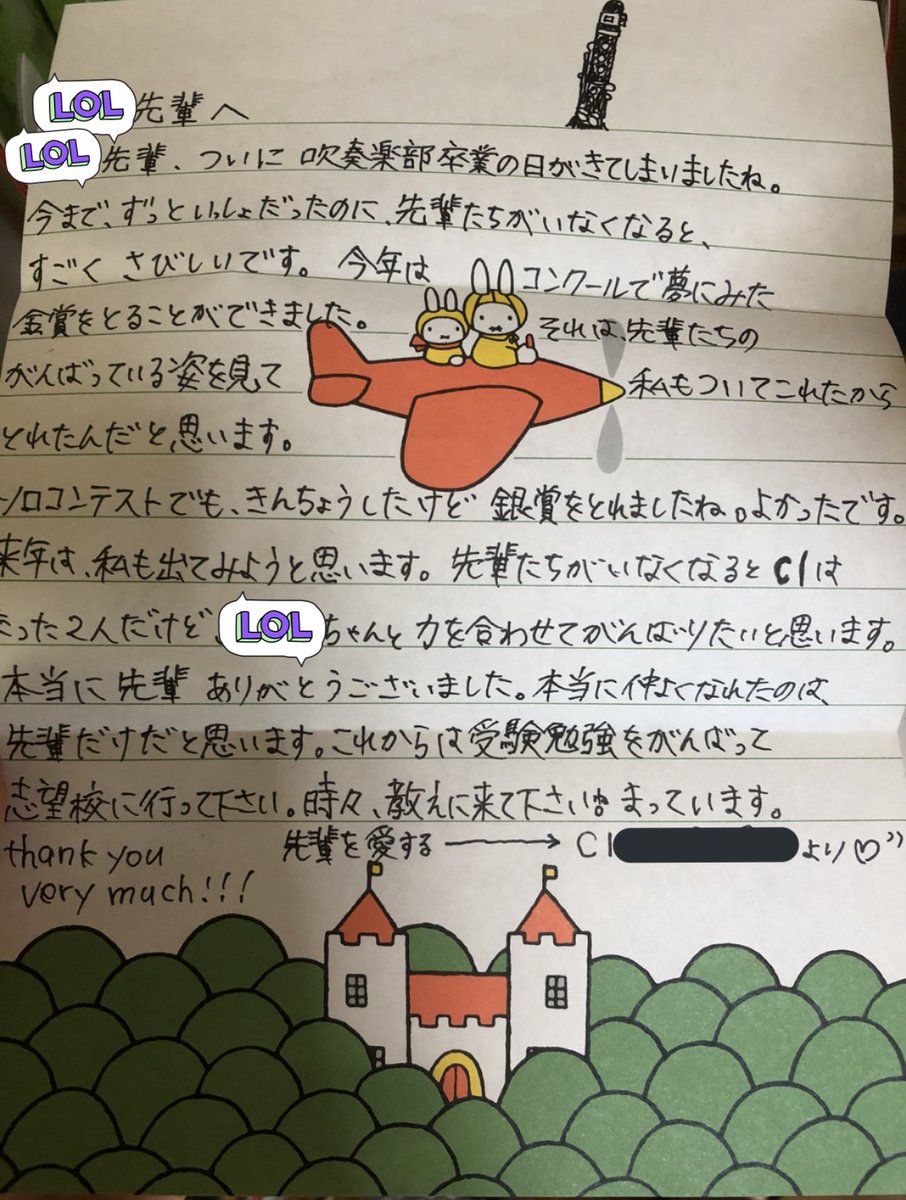 LOL 先輩へ
LOL 先輩、ついに 吹奏楽部卒業の日がきてしまいましたね。
今まで、ずっといっしょだったのに、先輩たちがいなくなると、
すごく さびしいです。 今年は コンクールで夢にみた
金賞をとることができました。 それは、先輩たちの
がんばっている姿を見て 私もついてこれたから
とれたんだと思います。
ソロコンテストでも、きんちょうしたけど 銀賞をとれましたね。よかったです。
来年は、私も出てみようと思います。先輩たちがいなくなると Clは
たった2人だけど、LOL ちゃんと力を合わせてがんばりたいと思います。
本当に 先輩 ありがとうございました。本当に仲よくなれたのは、
先輩だけだと思います。これからは受験勉強をがんばって
志望校に行って下さい。時々、教えに来て下さい。まっています。
thank you 先輩を愛する → Cl より♡
very much!!!